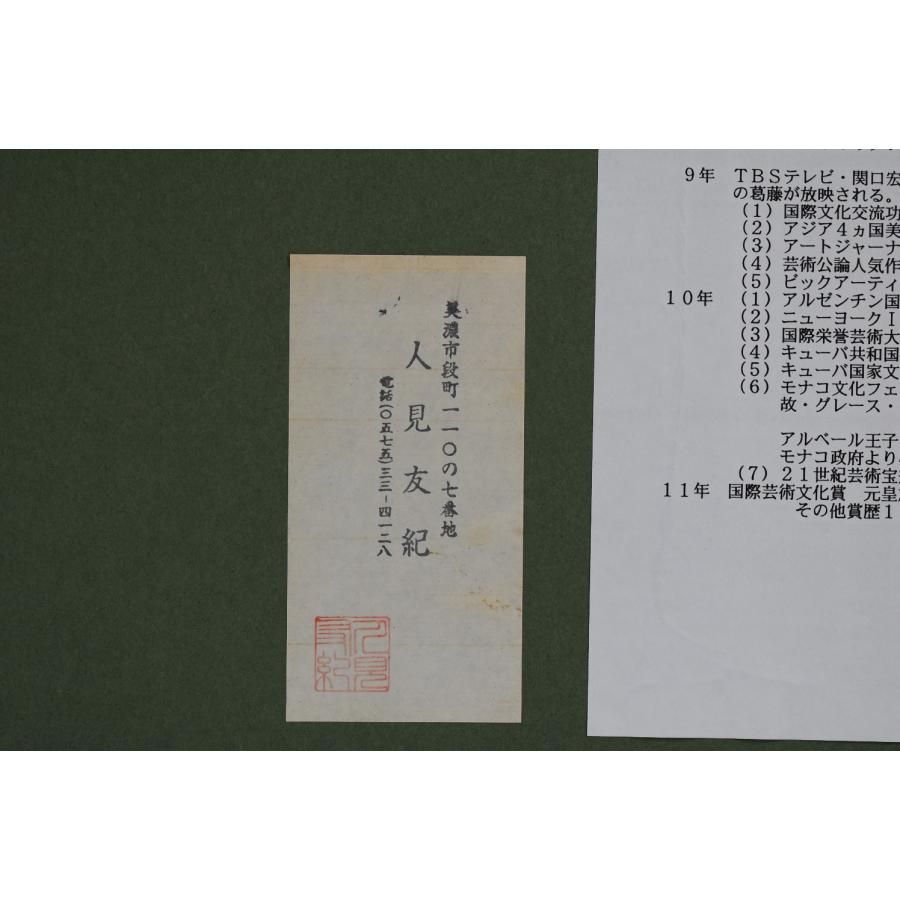 美濃市段町一一〇の七番地
人見友紀
電話(〇五七五)三三-四一二八
人見友紀
9年 TBSテレビ・関口宏
の葛藤が放映される。
(1)国際文化交流功
(2)アジア4ヵ国美
(3)アートジャーナ
(4)芸術公論人気作
(5)ビックアーティ
10年 (1)アルゼンチン国
(2)ニューヨークI
(3)国際栄誉芸術大
(4)キューバ共和国
(5)キューバ国家文
(6)モナコ文化フェ
故・グレース・
アルベール王子
モナコ政府より
(7)21世紀芸術宝
11年 国際芸術文化賞 元皇
その他賞歴1